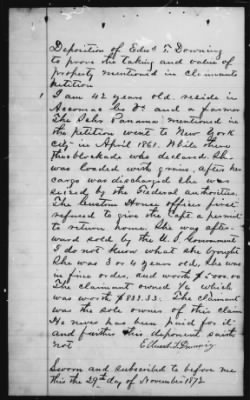 Deposition of Edwd T Downing
to prove the taking and value of
property mentioned in Claimants
Petition
I am 42 years old. reside in
Accomac Co Va and a farmer
The Schr Panama mentioned in
the petition went to New York
city in April 1861. While there
the blockade was declared She
was loaded with grain, after her
cargo was discharged she was
seized by the Federal authorities.
The Custom House officers first
refused to give the Capt a permit
to return home. She was after-
ward sold by the U. S. Government
I do not know what she brought
She was 3 or 4 years old, she was
in fine order, and worth
The claimant owned 1/6 which
was worth $833.33. The claimant
was the sole owner of this claim
He never has been paid for it
and further this deponent saith
not
Edward T Downing
Sworn and subscribed to before me
this the 29th day of November 1872